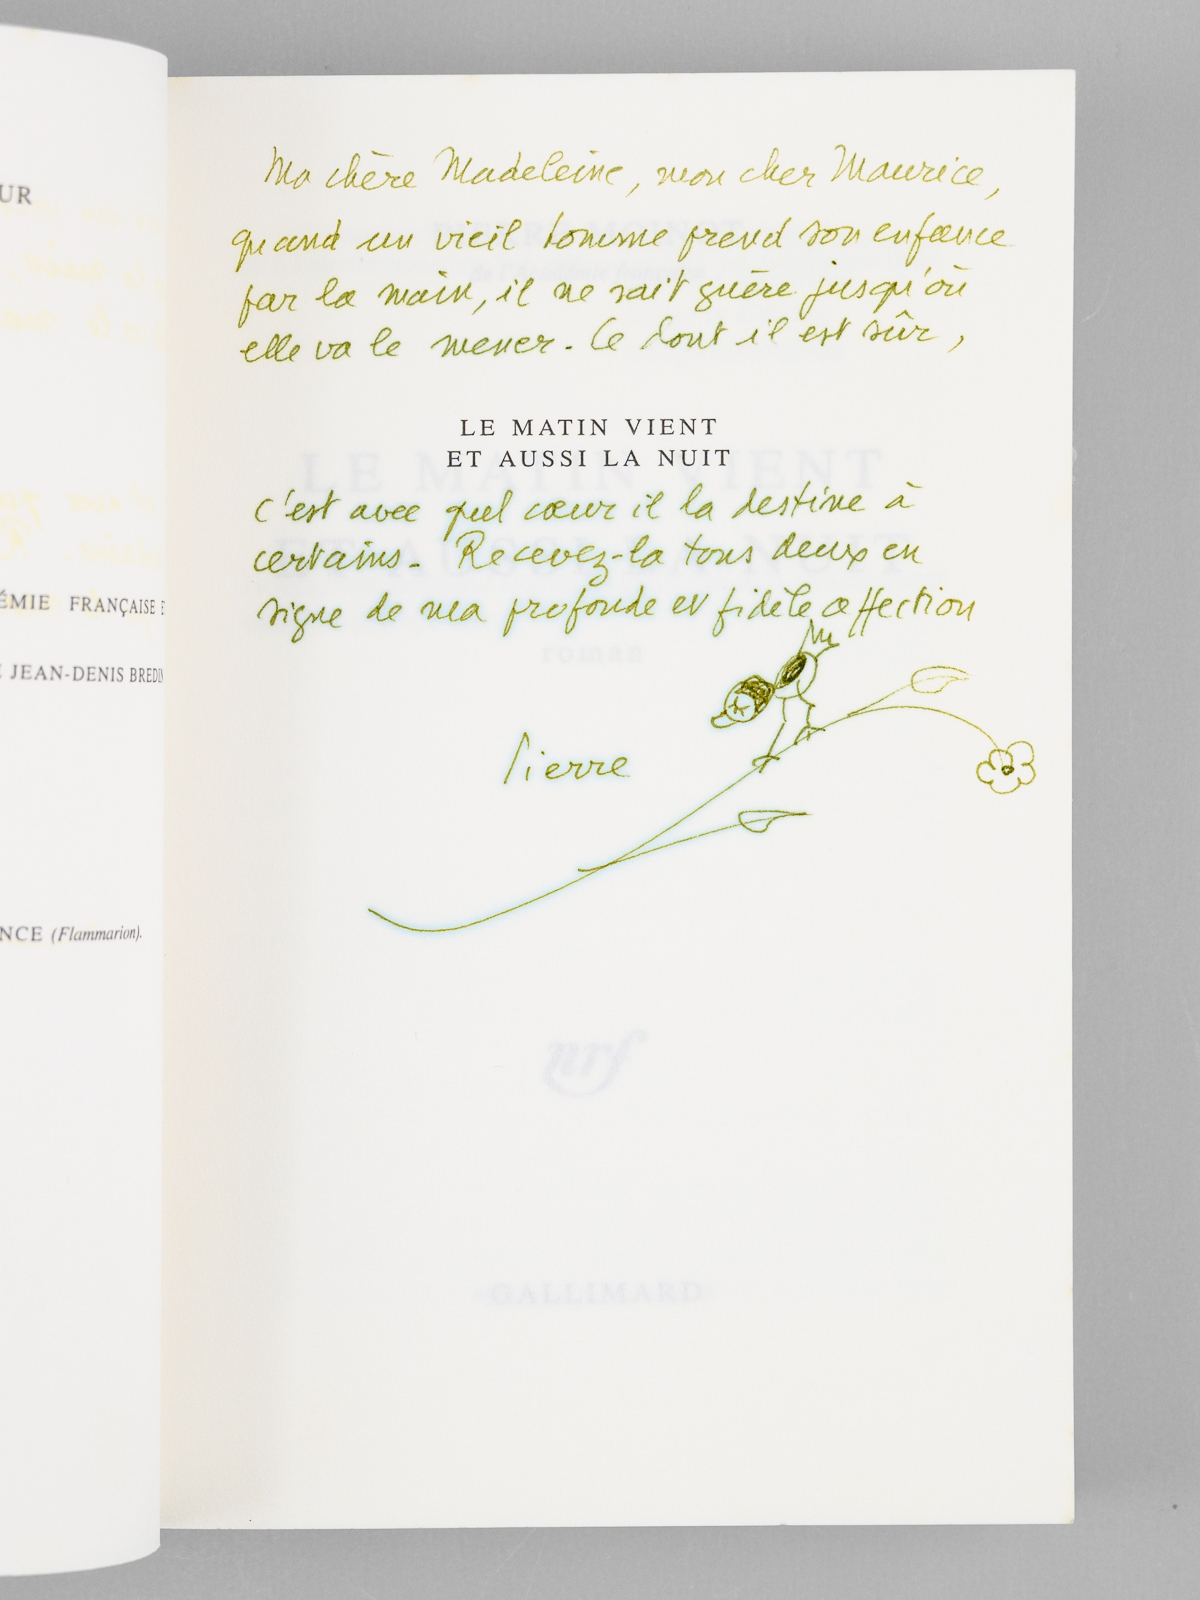 UR
ÉMIE FRANÇAISE E
JEAN-DENIS BREDIN
NCE (Flammarion).
Ma chère Madeleine, mon cher Maurice,
quand un vieil homme prend son enfance
par la main, il ne sait guère jusqu'où
elle va le mener. Ce dont il est sûr,
LE MATIN VIENT
ET AUSSI LA NUIT
c'est avec quel cœur il la destine à
certains. Recevez-la tous deux en
signe de ma profonde et fidèle affection
Pierre
LE MATIN VIENT
ET AUSSI LA NUIT
roman
nrf
GALLIMARD